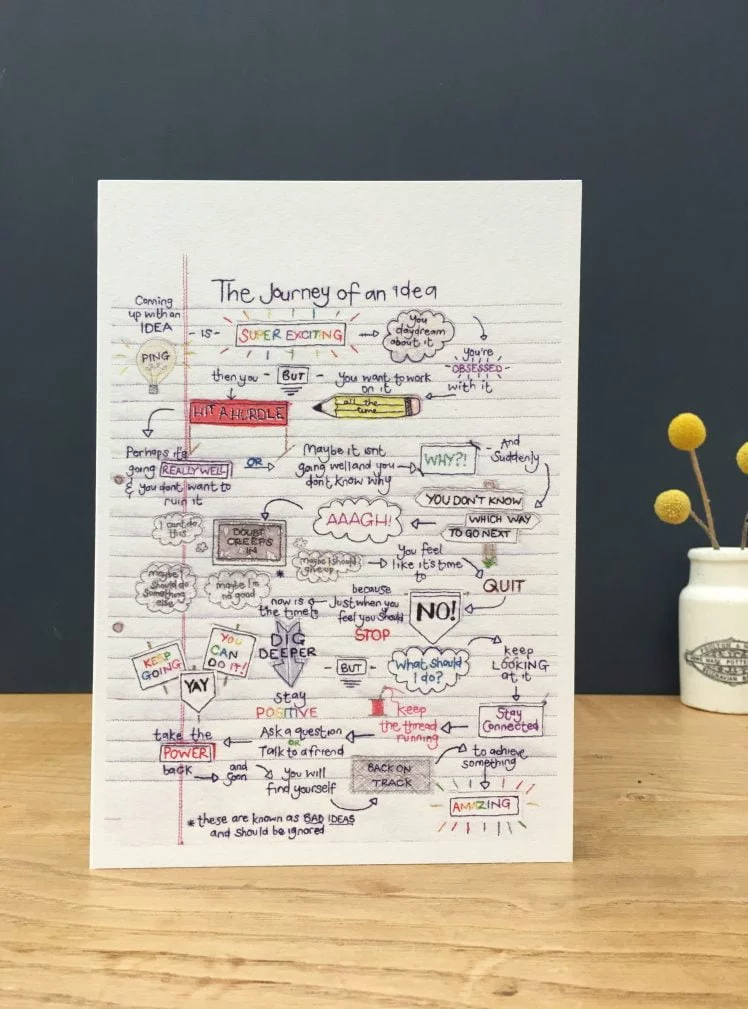 The Journey of an idea
Coming
up with an
IDEA
PING
- IS -
SUPER EXCITING
You
daydream
about it
you're
OBSESSED
with it
You want to work
on it
all the
time
- BUT -
then you
HIT A HURDLE
Perhaps its
going REALLY WELL
& you dont want to
ruin it
OR
Maybe it isnt
going well and you
dont know why
WHY?!
- And
Suddenly
YOU DON'T KNOW
WHICH WAY
TO GO NEXT
AAAGH!
DOUBT
CREEPS
IN
I cant do
this
maybe I
should do
something
else
maybe I'm
no good
maybe I should
give up
*
You feel
like it's time
to
QUIT
NO!
because
Just when you
feel you should
STOP
now is
the time to
DIG
DEEPER
KEEP
GOING
YOU
CAN
DO IT!
YAY
stay
POSITIVE
- BUT -
What should
I do?
keep
LOOKING
at it
Stay
Connected
keep
the thread
running
Ask a question
OR
Talk to a friend
take the
POWER
back
and
soon
you will
find yourself
BACK ON
TRACK
to achieve
something
AMAZING
* these are known as BAD IDEAS
and should be ignored